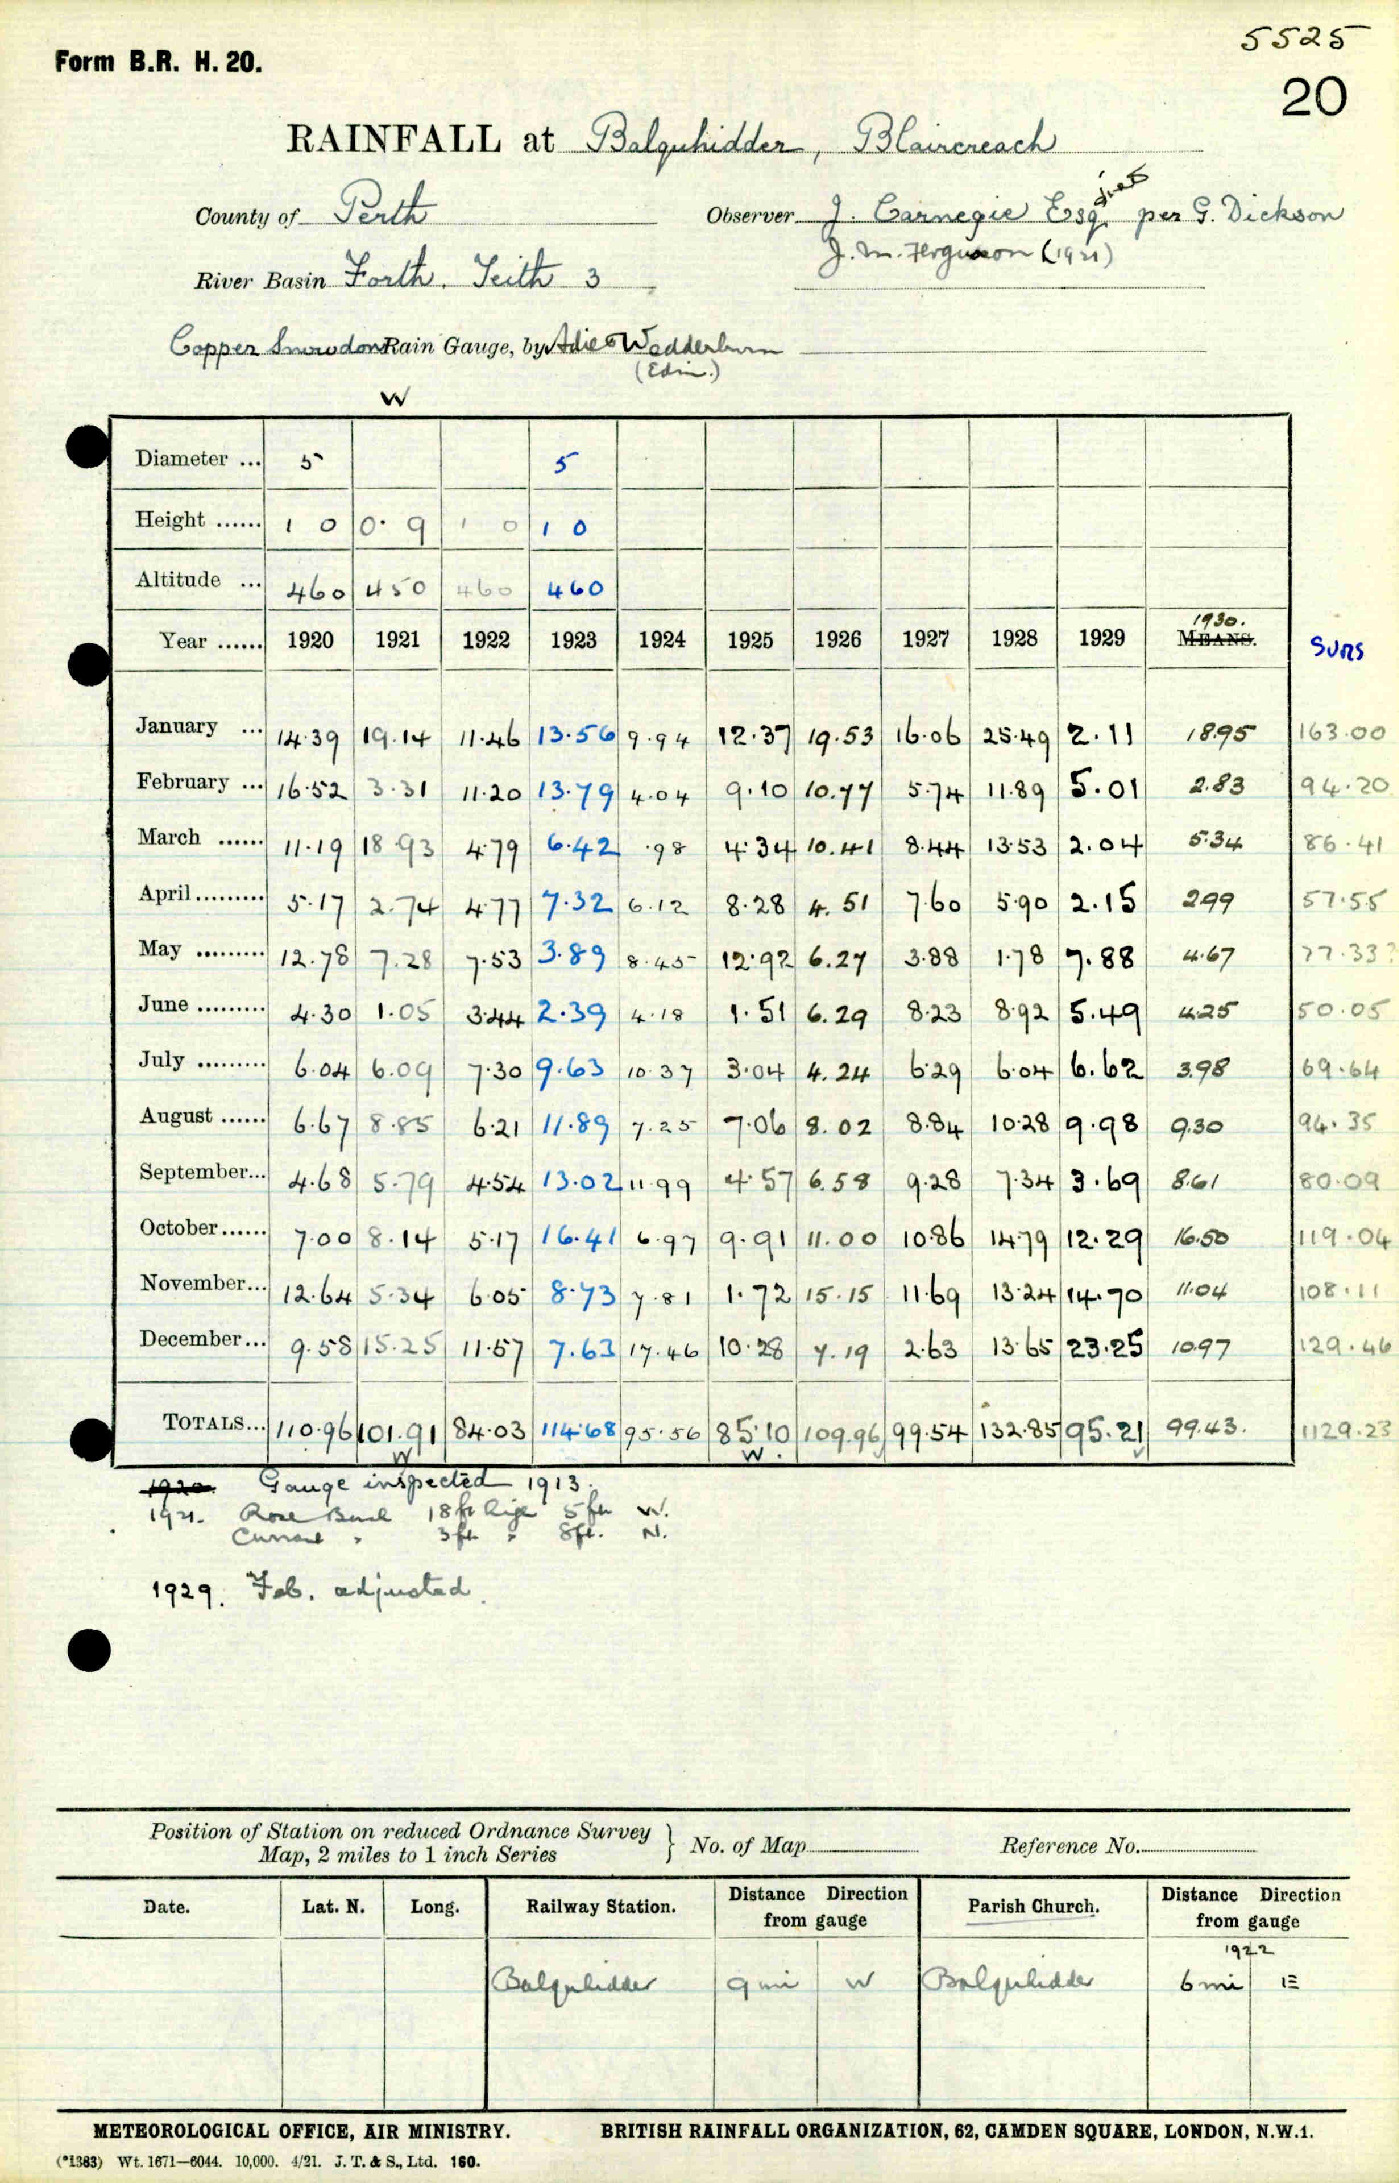 5525
Form B.R. H. 20.
20
RAINFALL at Balquhidder, Blaircreach
County of Perth Observer J. Carnegie Esq. per G. Dickson
J. M. Ferguson (1921)
River Basin Forth. Teith 3
Copper Snowdon Rain Gauge, by Adie & Wedderburn
(Edin.)
W
Diameter ... 5 5
Height ...... 1 0 0. 9 1 0 1 0
Altitude ... 460 450 460 460
1930.
Year ...... 1920 1921 1922 1923 1924 1925 1926 1927 1928 1929 MEANS. SUMS
January ... 14.39 19.14 11.46 13.56 9.94 12.37 19.53 16.06 25.49 2.11 18.95 163.00
February ... 16.52 3.31 11.20 13.79 4.04 9.10 10.77 5.74 11.89 5.01 2.83 94.20
March ...... 11.19 18.93 4.79 6.42 .98 4.34 10.41 8.44 13.53 2.04 5.34 86.41
April ......... 5.17 2.74 4.77 7.32 6.12 8.28 4.51 7.60 5.90 2.15 2.99 57.55
May ......... 12.78 7.28 7.53 3.89 8.45 12.92 6.27 3.88 1.78 7.88 4.67 77.33?
June ......... 4.30 1.05 3.44 2.39 4.18 1.51 6.29 8.23 8.92 5.49 4.25 50.05
July ......... 6.04 6.09 7.30 9.63 10.37 3.04 4.24 6.29 6.04 6.62 3.98 69.64
August ...... 6.67 8.85 6.21 11.89 7.25 7.06 8.02 8.84 10.28 9.98 9.30 94.35
September... 4.68 5.79 4.54 13.02 11.99 4.57 6.58 9.28 7.34 3.69 8.61 80.09
October...... 7.00 8.14 5.17 16.41 6.97 9.91 11.00 10.86 14.79 12.29 16.50 119.04
November... 12.64 5.34 6.05 8.73 7.81 1.72 15.15 11.69 13.24 14.70 11.04 108.11
December... 9.58 15.25 11.57 7.63 17.46 10.28 7.19 2.63 13.65 23.25 10.97 129.46
TOTALS... 110.96 101.91 84.03 114.68 95.56 85.10 109.96 99.54 132.85 95.21 99.43. 1129.23
W W.
1920 Gauge inspected 1913.
1921. Rose Bush 18ft high 5ft W.
Currant " 3ft " 8ft. N.
1929. Feb. adjusted.
Position of Station on reduced Ordnance Survey
Map, 2 miles to 1 inch Series } No. of Map Reference No.
Date. Lat. N. Long. Railway Station. Distance Direction from gauge Parish Church. Distance Direction from gauge
1922
Balquhidder 9 mi W Balquhidder 6 mi E
METEOROLOGICAL OFFICE, AIR MINISTRY. BRITISH RAINFALL ORGANIZATION, 62, CAMDEN SQUARE, LONDON, N.W.1.
(*1383) Wt. 1671—6044. 10,000. 4/21. J. T. & S., Ltd. 160.